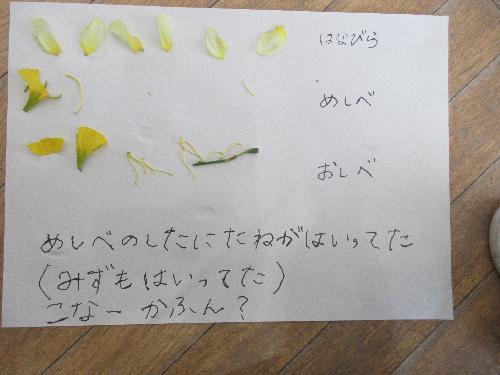 はなびら
めしべ
おしべ
めしべのしたにたねがはいってた
(みずもはいってた)
こなーかふん?